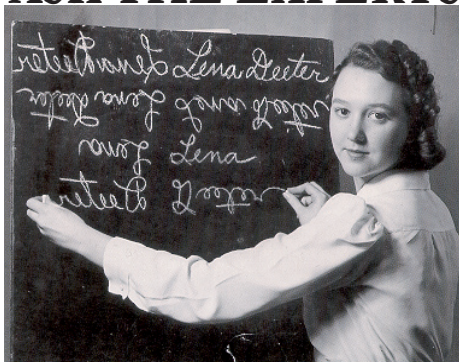 ASK THE EXPERTS
Lena Deeter Lena Deeter
Lena Deeter Lena Deeter
Lena Lena
Deeter Deeter